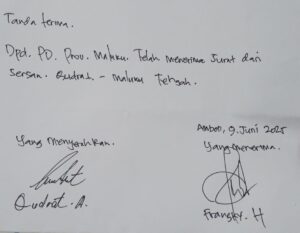 Tanda terima.
Dpd. PD. Prov. Maluku. Telah menerima surat dari
Sersan. Qudrat - maluku Tengah.
Ambon, 9. Juni 2025
Yang Menyerahkan.
Yang menerima.
Qudrat. A.
Fransky. H